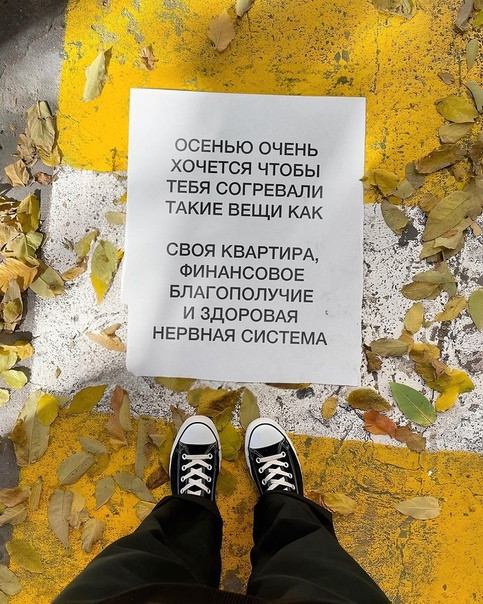 ОСЕНЬЮ ОЧЕНЬ
ХОЧЕТСЯ ЧТОБЫ
ТЕБЯ СОГРЕВАЛИ
ТАКИЕ ВЕЩИ КАК
СВОЯ КВАРТИРА,
ФИНАНСОВОЕ
БЛАГОПОЛУЧИЕ
И ЗДОРОВАЯ
НЕРВНАЯ СИСТЕМА